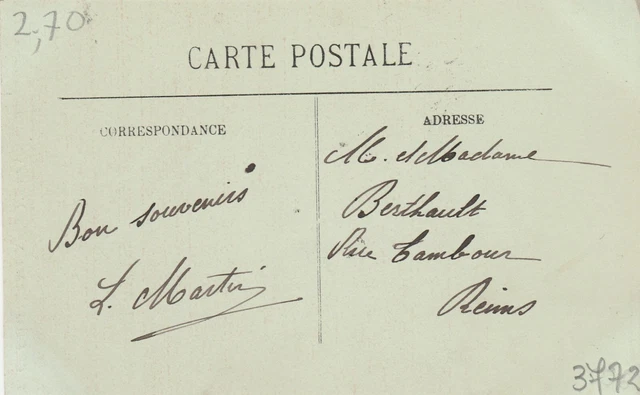 2,70
CARTE POSTALE
CORRESPONDANCE
Bon souvenirs
L. Martin
ADRESSE
M. et Madame
Berthault
Rue Tambour
Reims
3772